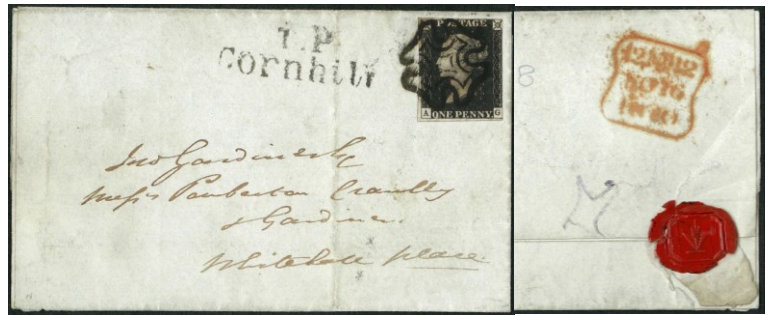 T.P
Cornhill
POSTAGE
A ONE PENNY G
Jno Gardiner Esq
Messrs Pemberton Crawley
& Gardiner
Whitehall Place
8
12 NN 12
NO 16